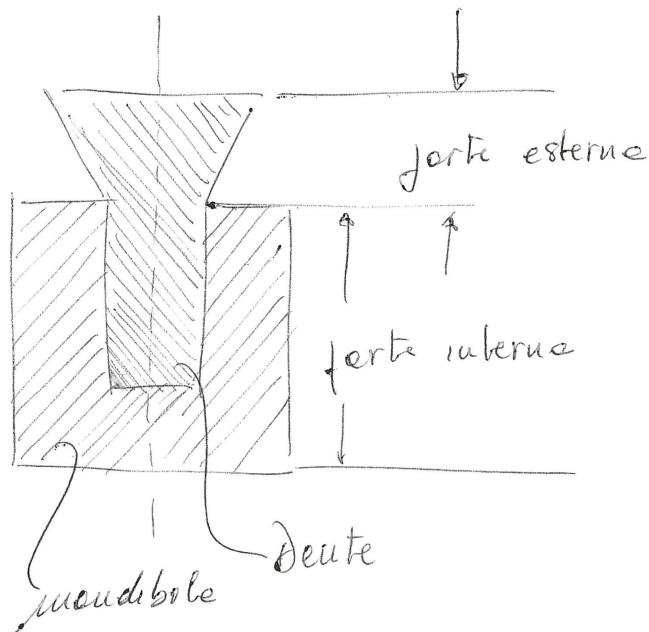 parte esterna
parte interna
Dente
mandibola